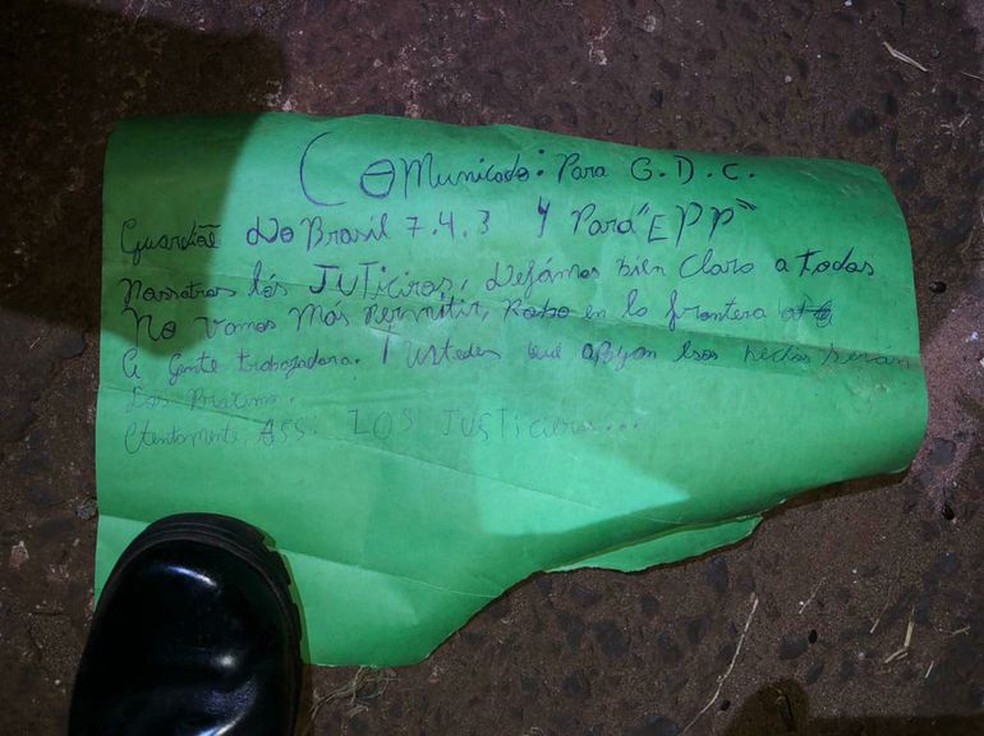 Comunicado: Para G.D.C.
Guardiõe do Brasil 7.4.3 y Para "EPP"
Nossotros lós JUTiciros, Defámos bien Claro a todas
No vamos Más Permitir, Robo en la frontera
a Gente trabajadora. I ustedes que apoyan esos hechos serán
Los Proximo.
Atentamente. ASS: LOS JUSTicieros...